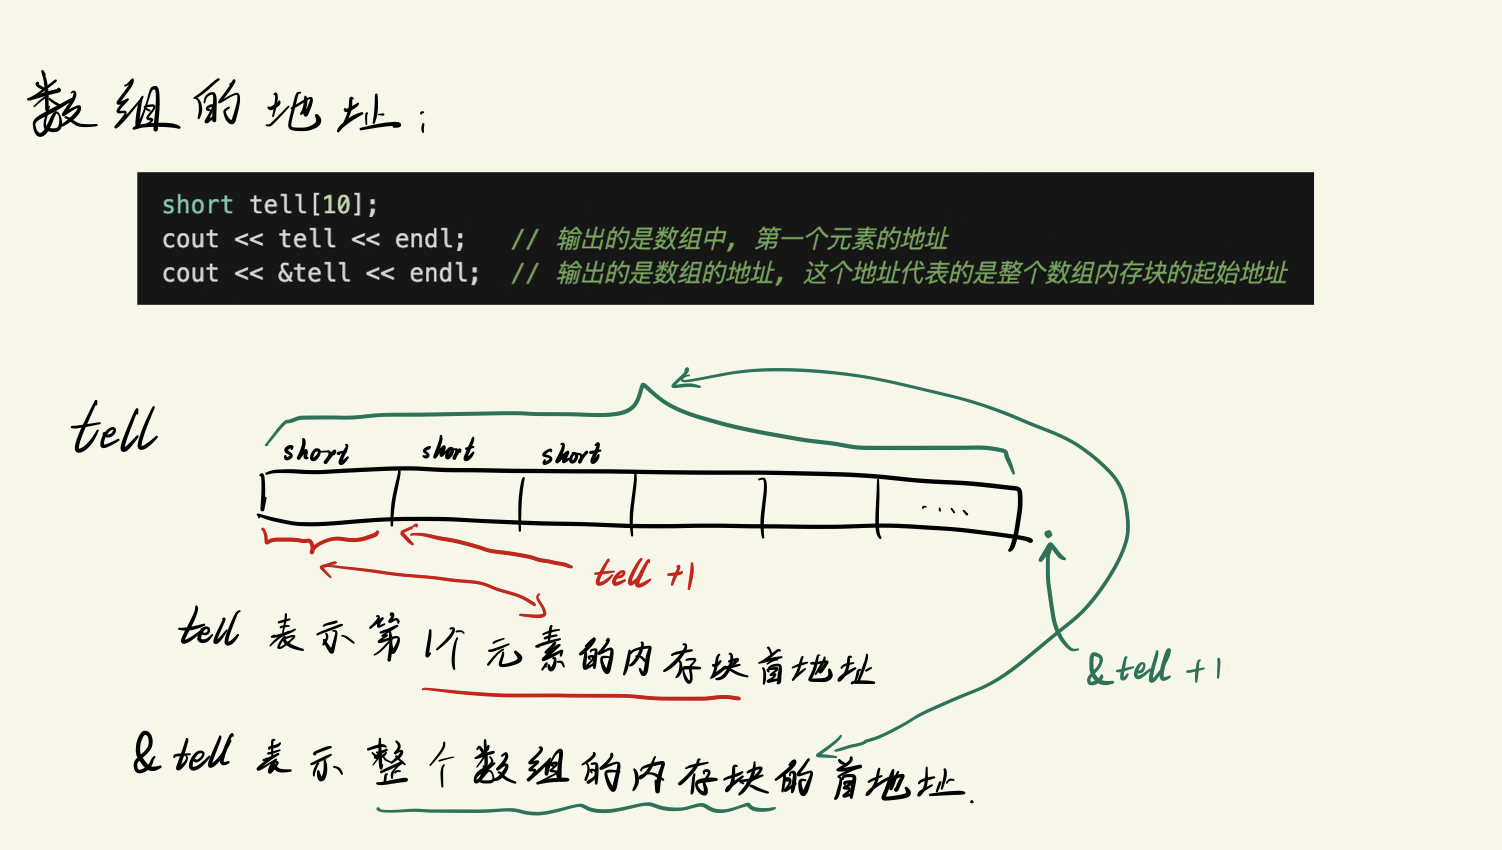 数组的地址:
short tell[10];
cout << tell << endl;   // 输出的是数组中, 第一个元素的地址
cout << &tell << endl;  // 输出的是数组的地址, 这个地址代表的是整个数组内存块的起始地址
tell
short short short
....
tell +1
tell 表示第1个元素的内存块首地址
&tell +1
&tell 表示整个数组的内存块的首地址.